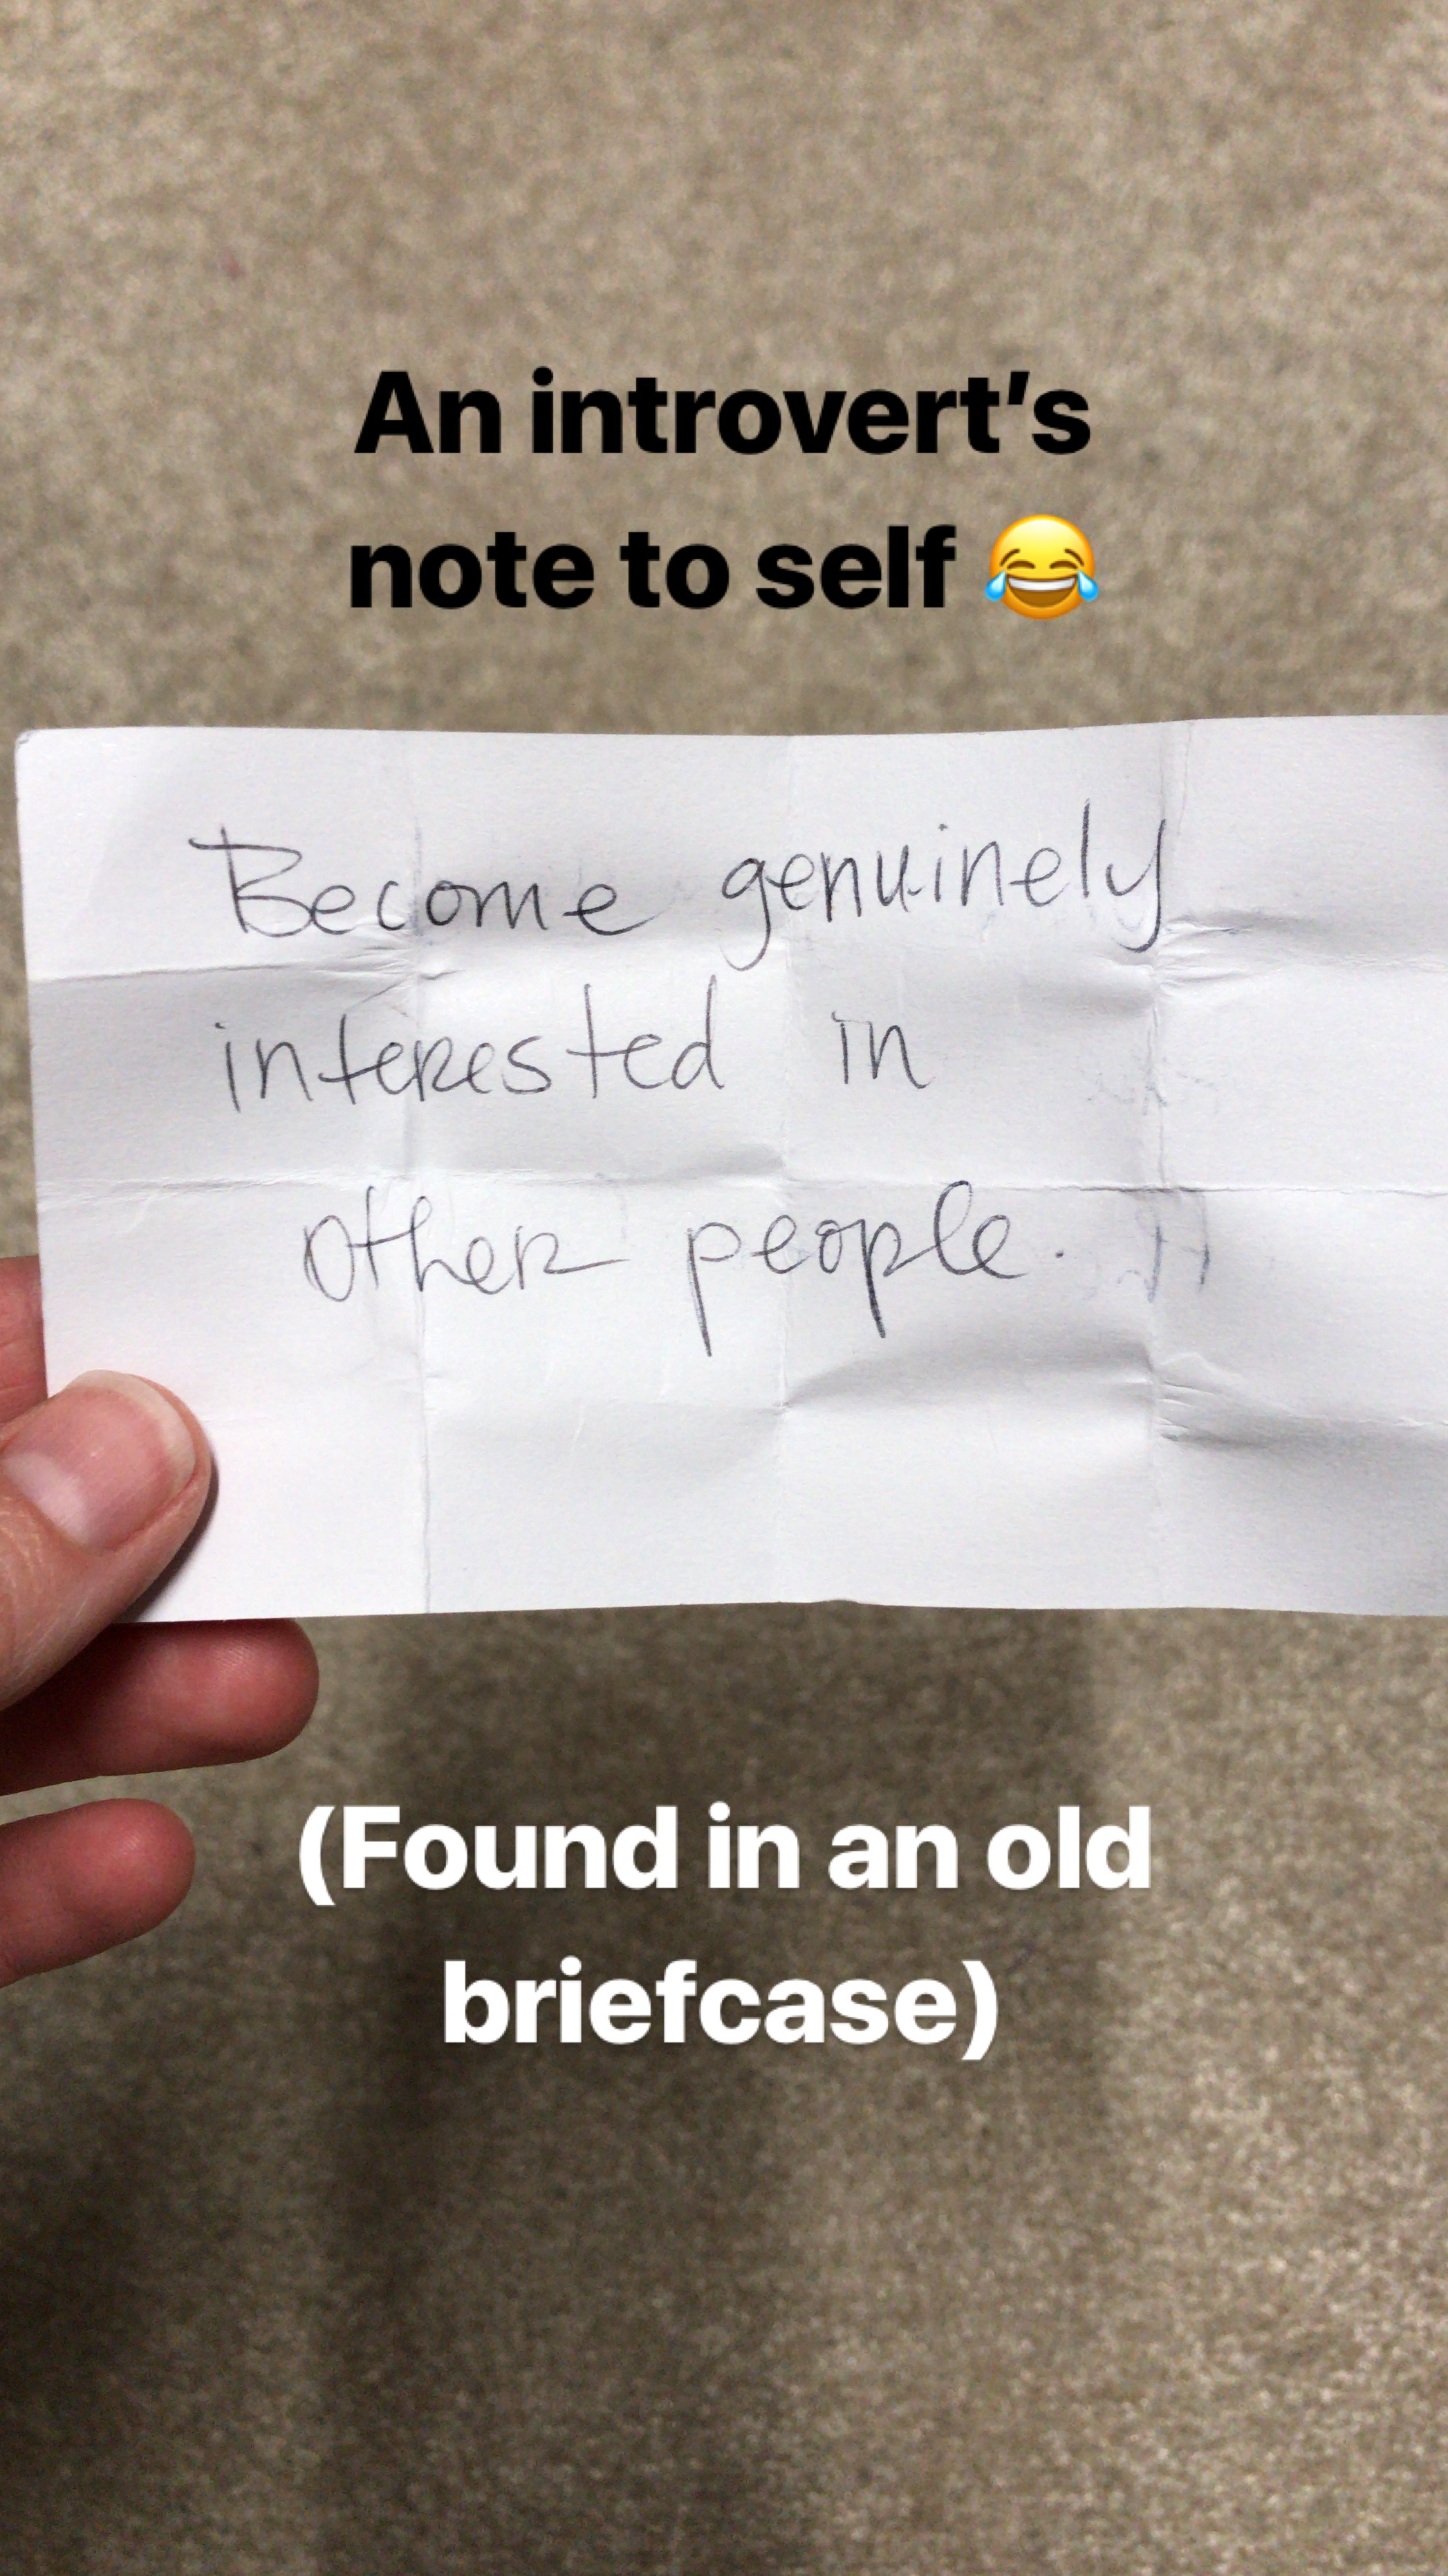 An introvert’s
note to self 😂
Become genuinely
interested in
other people.
(Found in an old
briefcase)